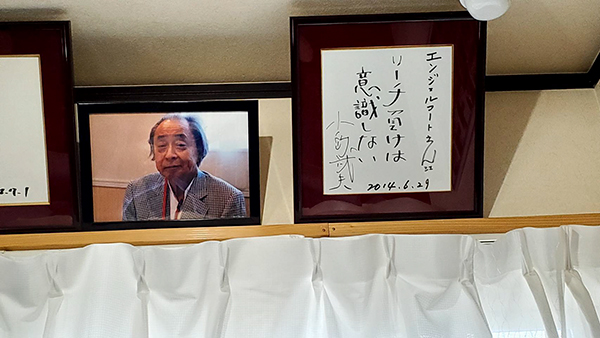 エンジェルコートさん江
リーチ負けは
意識しない
小島武夫
2014.6.29